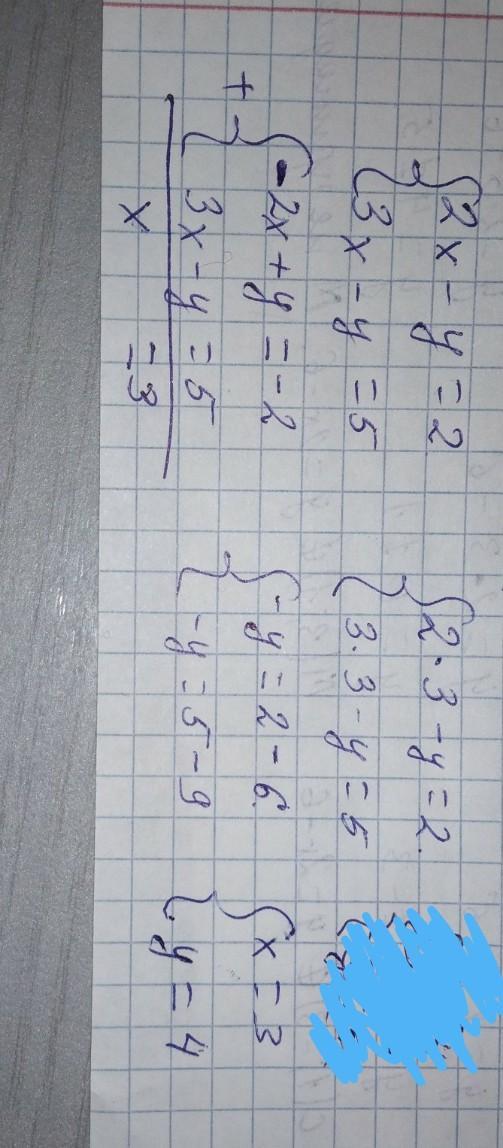 {2x-y=2
{3x-y=5
+
{-2x+y=-2
{3x-y=5
x =3
{2·3-y=2
{3·3-y=5
{-y=2-6
{-y=5-9
{x=3
{y=4